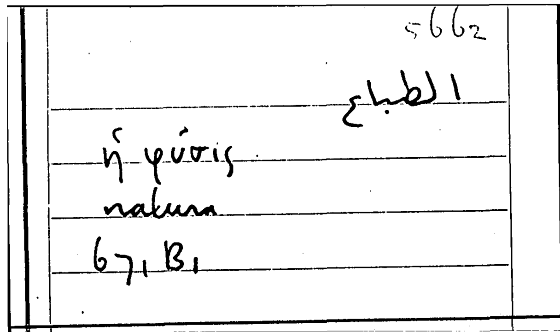 5662
الطباع
ἡ φύσις
natura
67, B,